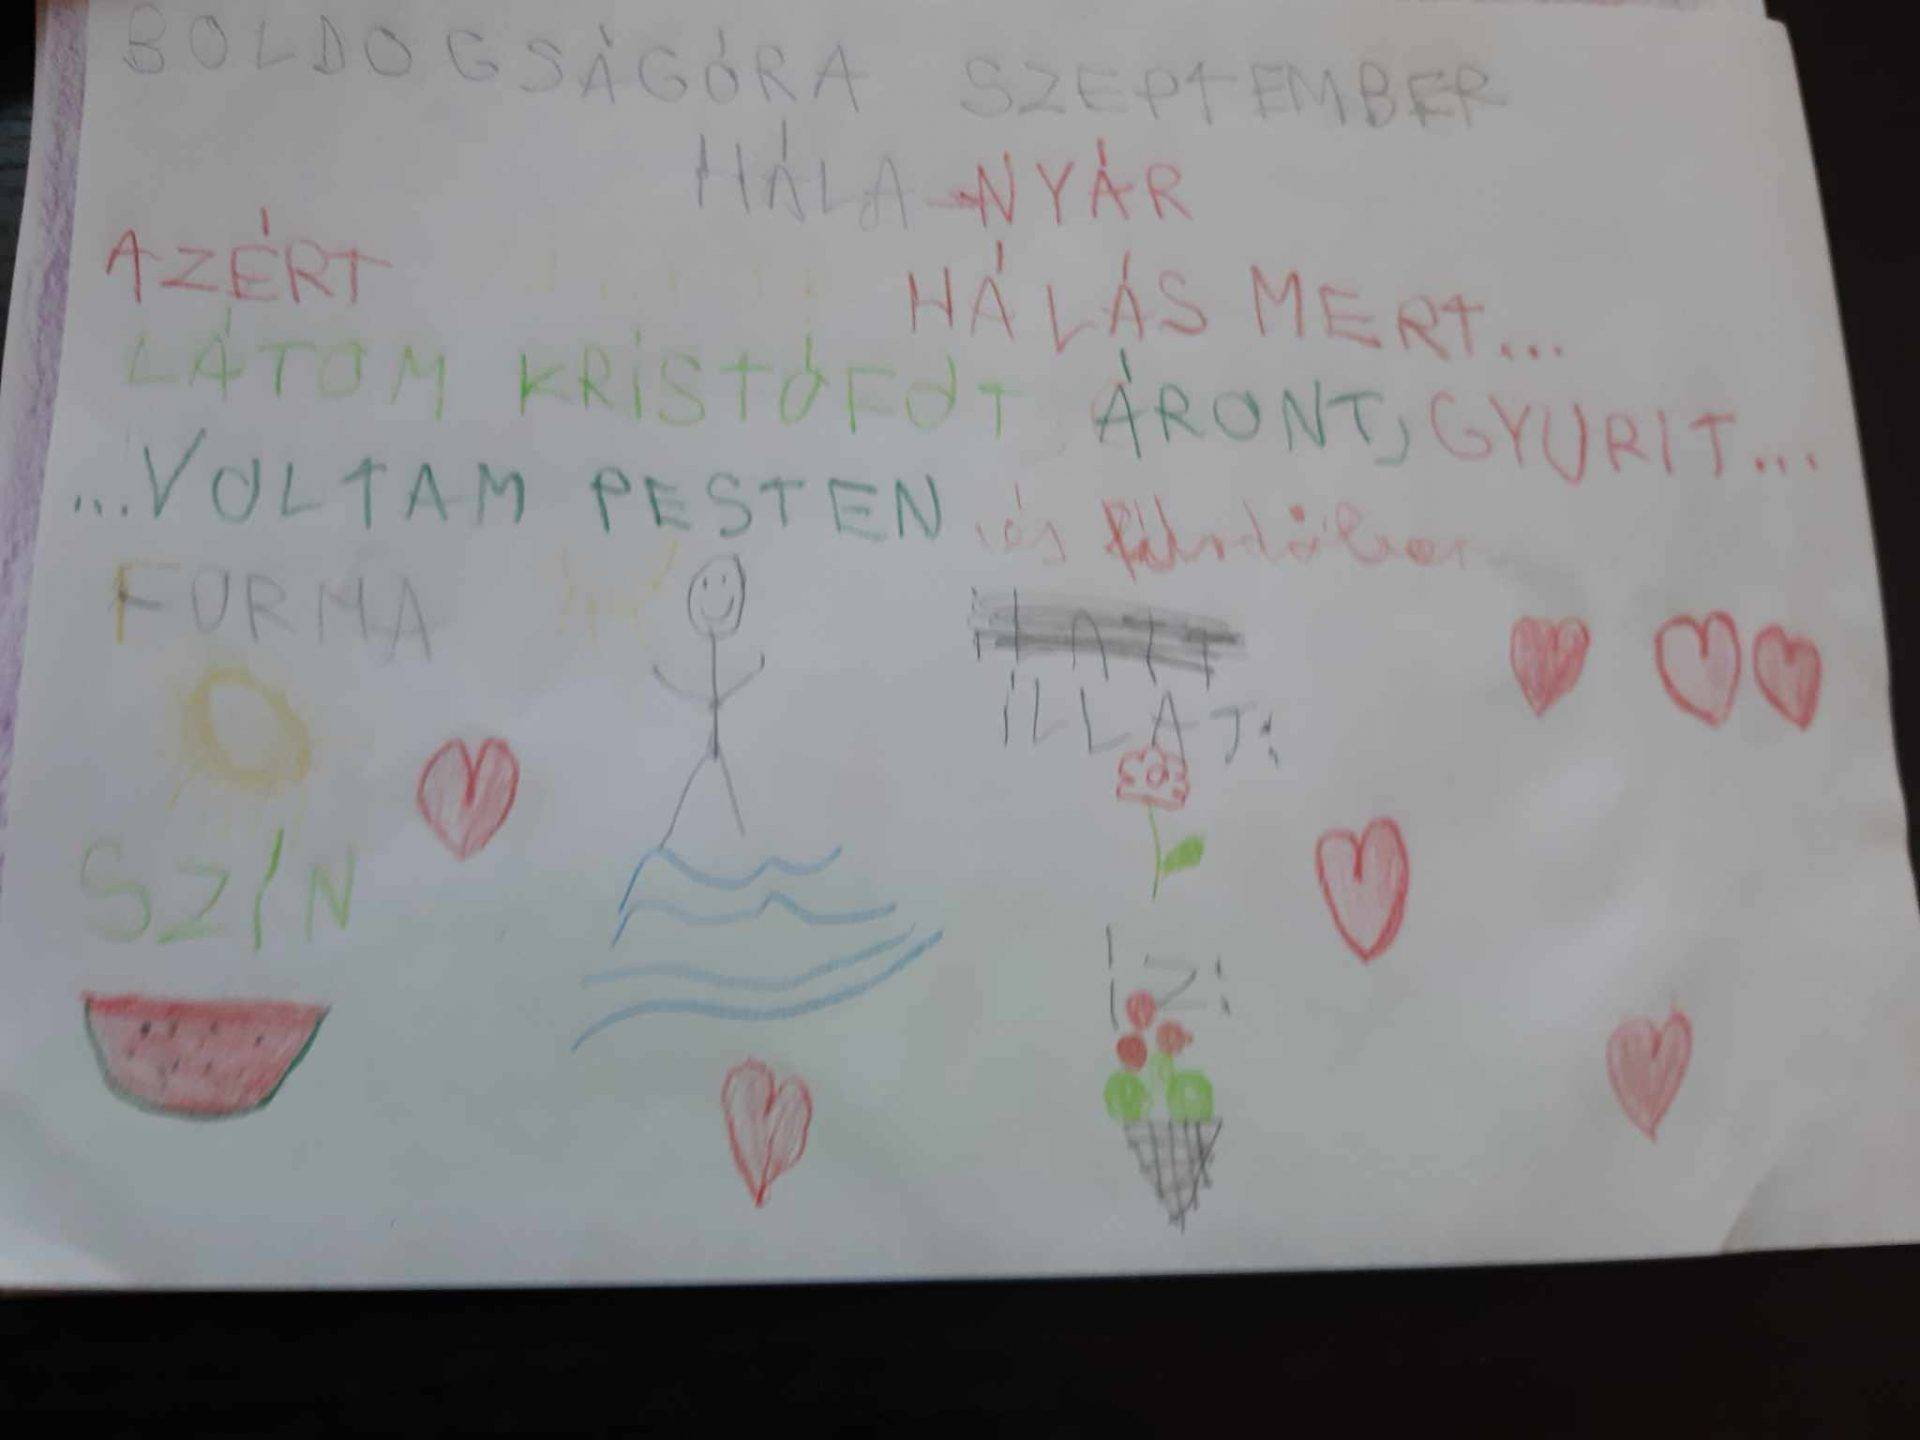 BOLDOGSÁGÓRA SZEPTEMBER
HÁLA-NYÁR
AZÉRT HÁLÁS MERT...
LÁTOM KRISTÓFOT ÁRONT, GYURIT...
...VOLTAM PESTEN és fürdőben
FORMA
ILLAT:
SZÍN
ÍZ: